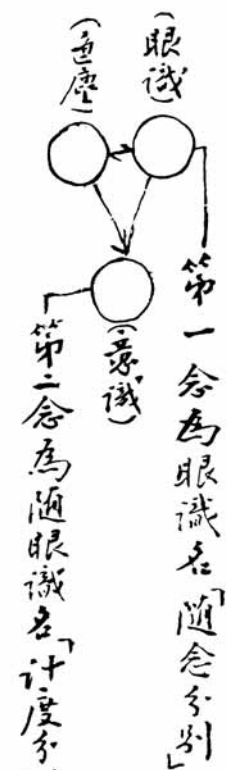 (眼識)
(色塵)
(意識)
第一念為眼識名「隨念分別」
第二念為隨眼識名「計度分